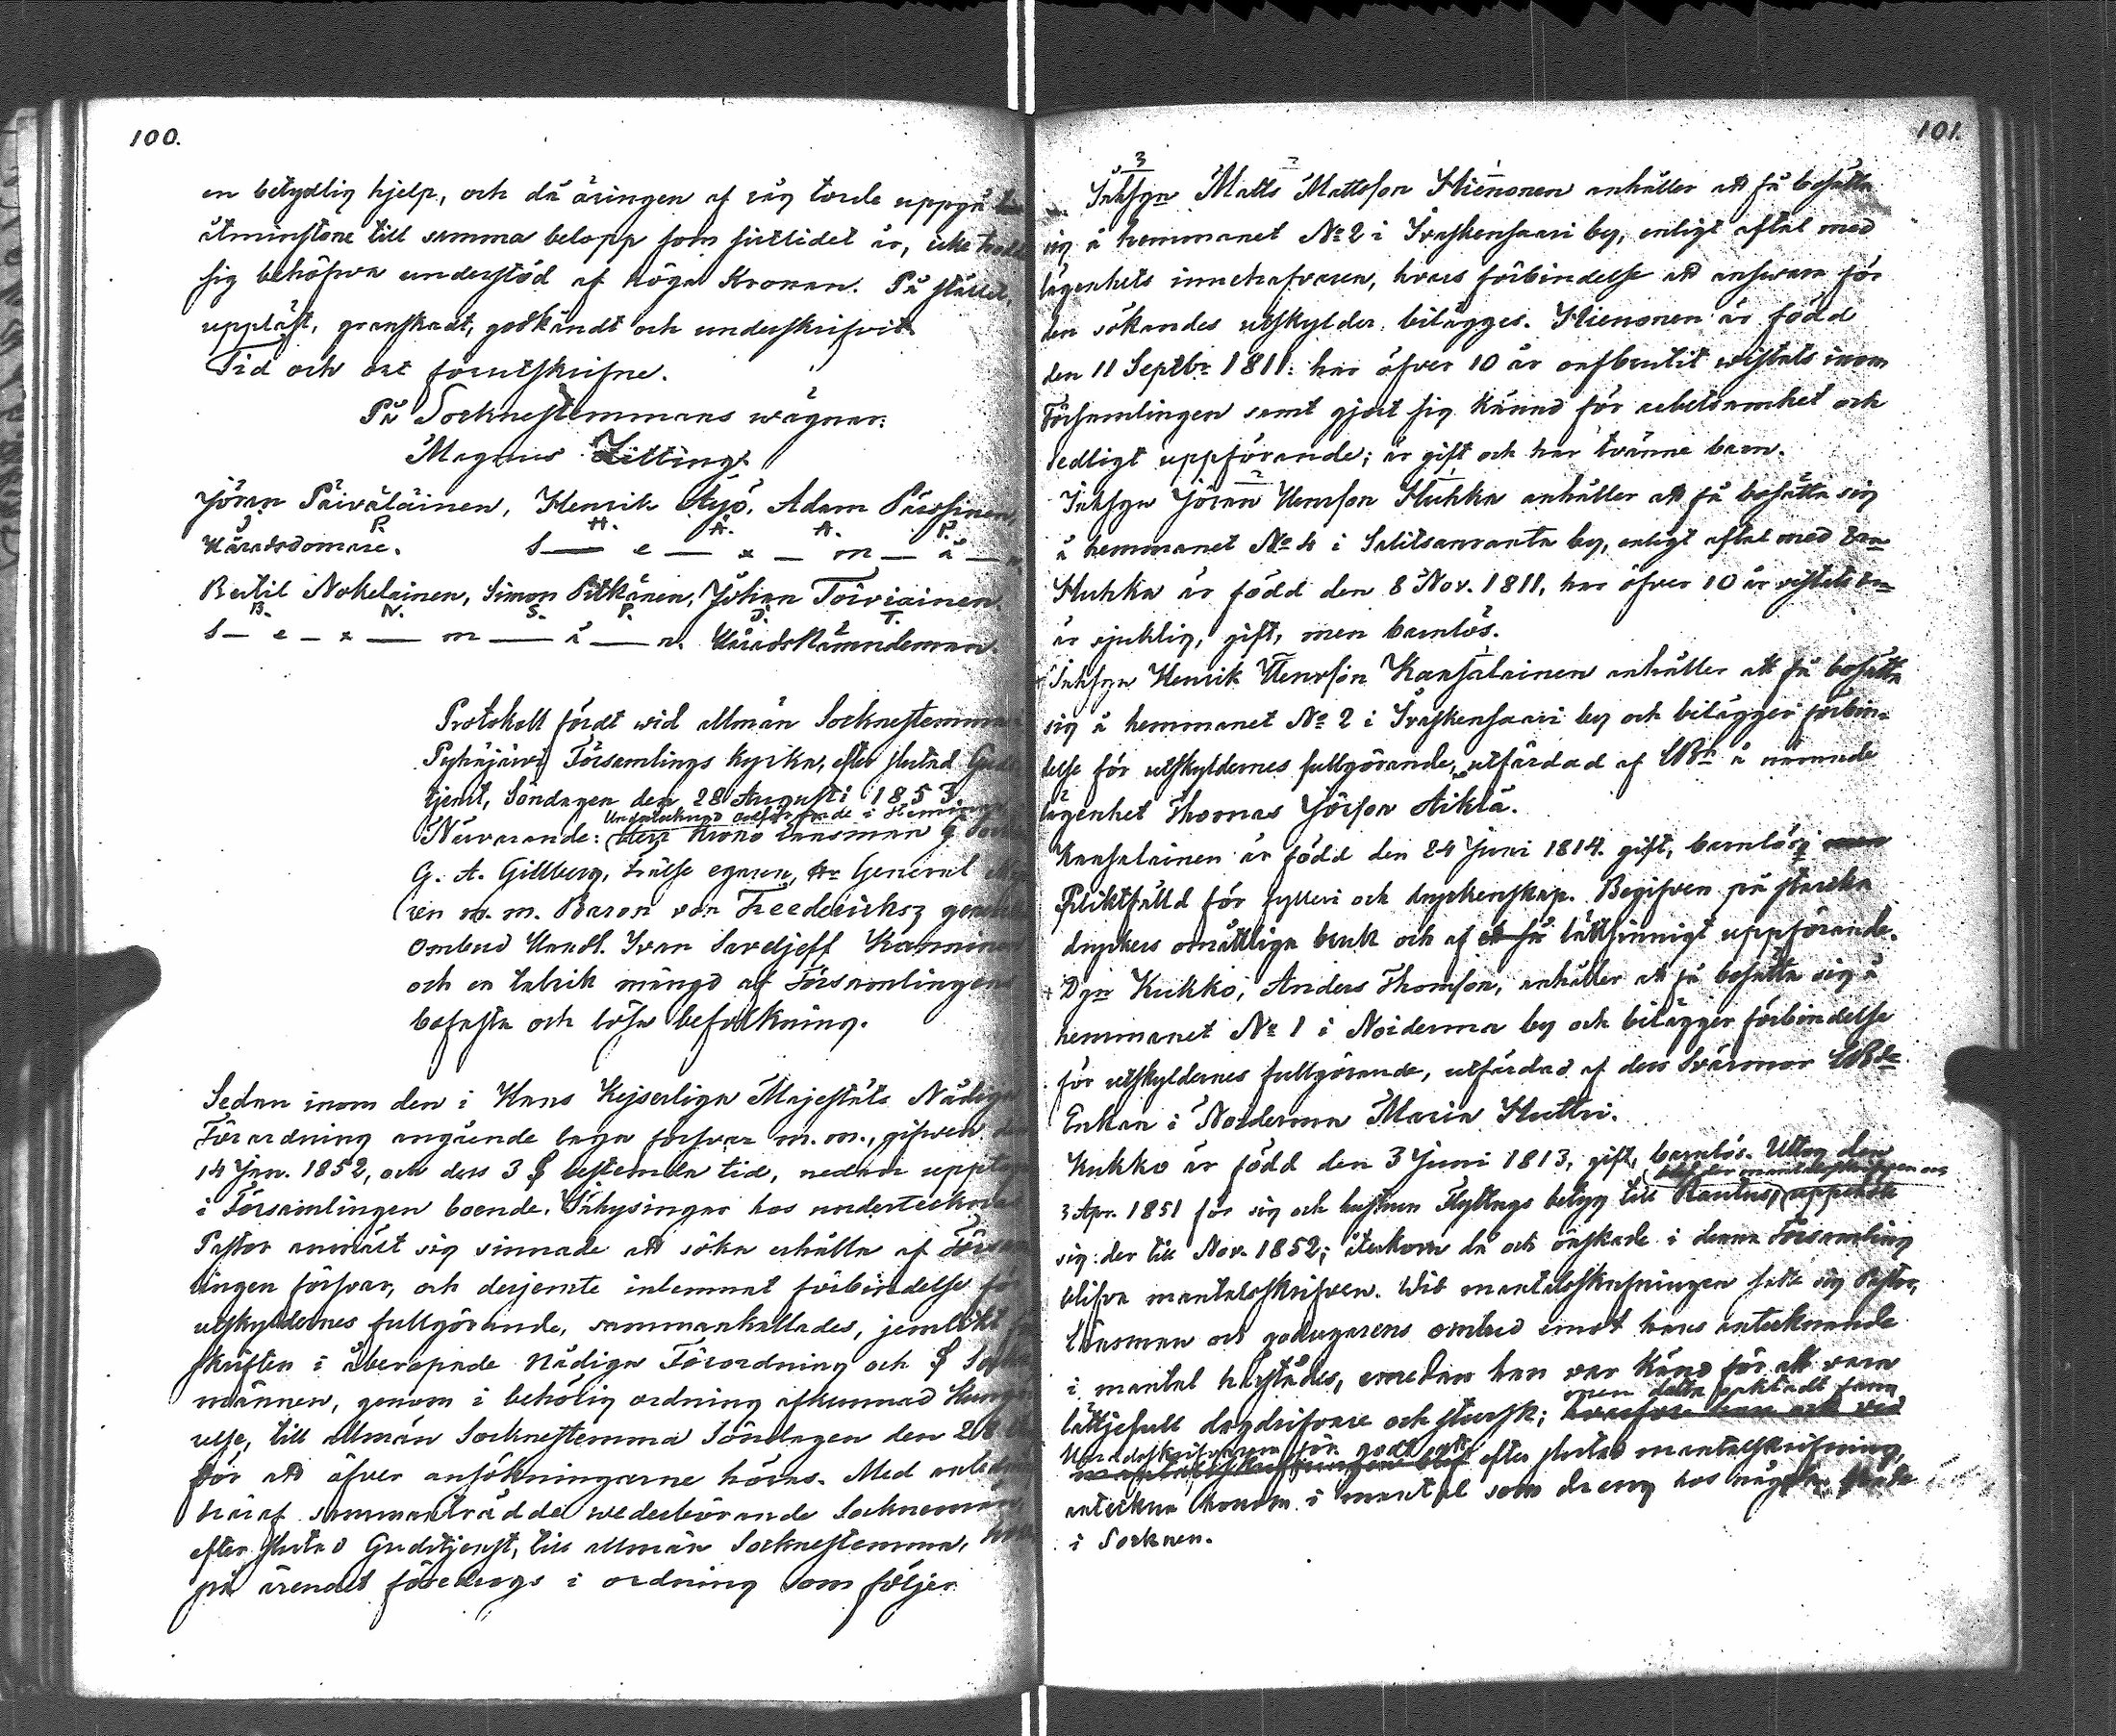 100.
en betydlig hjelp, och då äringen af råg torde uppgå
åtminstone till samma belopp som sistlidet år, icke
sig behöfva understöd af höga Kronan. På stället,
uppläst, granskadt, godkändt och underskrifvit
Tid och ort förutskrifne.
På Socknestemmans wägnar:
Magnus Zitting.
Jöran Päiväläinen, Henrik Äijö, Adam Pässinen,
J. P. H. Ä. A. P.
Häradsdomare. S — e — x — m — ä — n.
Bertil Nokelainen, Simon Pitkänen, Johan Toiviainen.
B. N. S. P. J. T.
S — e — x — m — ä — n. Häradsnämndeman.
Protokoll fördt wid allmän Socknestemma
Pyhäjärvi Församlings kyrka, efter slutad Guds
tjenst, Söndagen den 28 Augusti 1853.
Undertecknad ordförande i
Närvarande: Herr Krono Länsman G
G. A. Gillberg, Frälse egaren, Hr General
ren m. m. Baron von Freedericksz genom
Ombud Handl. Ivan Savdjeff Kamminen
och en talrik mängd af Församlingens
bofasta och lösa befolkning.
Sedan inom den i Hans Kejserliga Majestäts Nådiga
Förordning angående laga försvar m. m., gifven den
14 Jan. 1852, och dess 3 § bestemda tid, nedan
i Församlingen boende, Inhysingar hos undertecknad
Pastor anmält sig sinnade att söka erhålla af Försam
lingen försvar, och derjemte inlemnat förbindelse för
utskyldernes fullgörande, sammankallades, jemlikt
skriften i åberopade Nådiga Förordning och § Sockne
männen, genom i behörig ordning afkunnad Kungö
relse, till allmän Socknestemma Söndagen den 28
för att öfver ansökningarne höras. Med anledning
häraf sammanträdde wederbörande Sockneman
efter slutad Gudstjenst, till allmän Socknestemma,
på ärendet företogs i ordning som följer
101.
3
Inhsyn Matts Mattsson Hienonen anhåller att få bosätta
sig å hemmanet No 2 i Ivaskensaari by, enligt aftal med
lägenhets innehafvaren, hvars förbindelse att answara för
den sökandes utskylder bilägges. Hienonen är född
den 11 Septbr 1811: har öfver 10 år oafbrutit wistats inom
Församlingen samt gjort sig känd för arbetsamhet och
sedligt uppförande; är gift och har tvänne barn.
Inhsyn Jöran Henrsson Huhka anhåller att få bosätta sig
å hemmanet No 4 i Salitsanranta by, enligt aftal med
Huhka är född den 8 Nov. 1811, har öfver 10 år vistats
är sjuklig, gift, men barnlös.
Inhsyn Henrik Henrsson Kansalainen anhåller att få bosätta
sig å hemmanet No 2 i Ivaskensaari by och bilägger förbin-
delse för utskyldernes fullgörande, utfärdad af å nämnde
lägenhet Thomas Jörsson Aikiä.
Kansalainen är född den 24 Juni 1814. gift, barnlös; men
Pliktfälld för fylleri och dryckenskap. Begifven på starka
dryckers omåttliga bruk och af ett så lättsinnigt uppförande.
+ Dgn Kukko, Anders Thomsson, anhåller att få bosätta sig å
hemmanet No 1 i Noiderma by och bilägger förbindelse
för utskyldernes fullgörande, utfärdad af dess Svärmor
Enkan i Noiderma Maria Huttri.
Kukko är född den 3 Juni 1813, gift, barnlös. Uttog den
blef der mantalsskrifven och
3 Apr. 1851 för sig och hustrun Flyttnings betyg till Rautus, uppehöll
sig der till Nov. 1852; återkom då och önskade i denna Församling
blifva mantalsskrifven. Wid mantalsskrifningen satte sig Pastor,
Länsman och godsegarens ombud emot hans antecknande
i mantal härstädes, emedan han var känd för att vara
men detta oaktadt fann
lättjefull dagdrifvare och stursk;
Häradsskrifvaren för godt att
efter slutad mantalsskrifning,
anteckna honom i mantal som dreng hos någon
i Socknen.